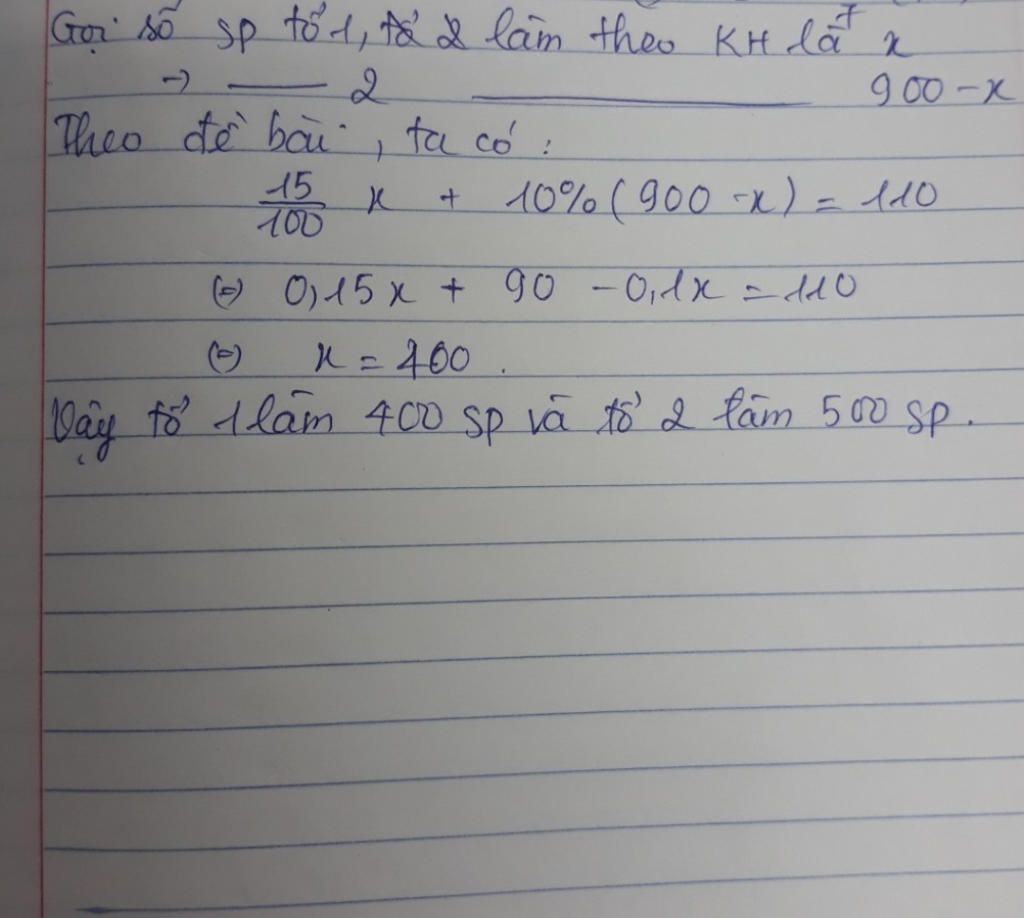 Gọi số sp tổ 1, tổ 2 làm theo KH là x
→ —— 2 ———————— 900 - x
Theo đề bài, ta có:
15/100 x + 10% (900 - x) = 110
(=) 0,15x + 90 - 0,1x = 110
(=) x = 400.
Vậy tổ 1 làm 400 sp và tổ 2 làm 500 sp.